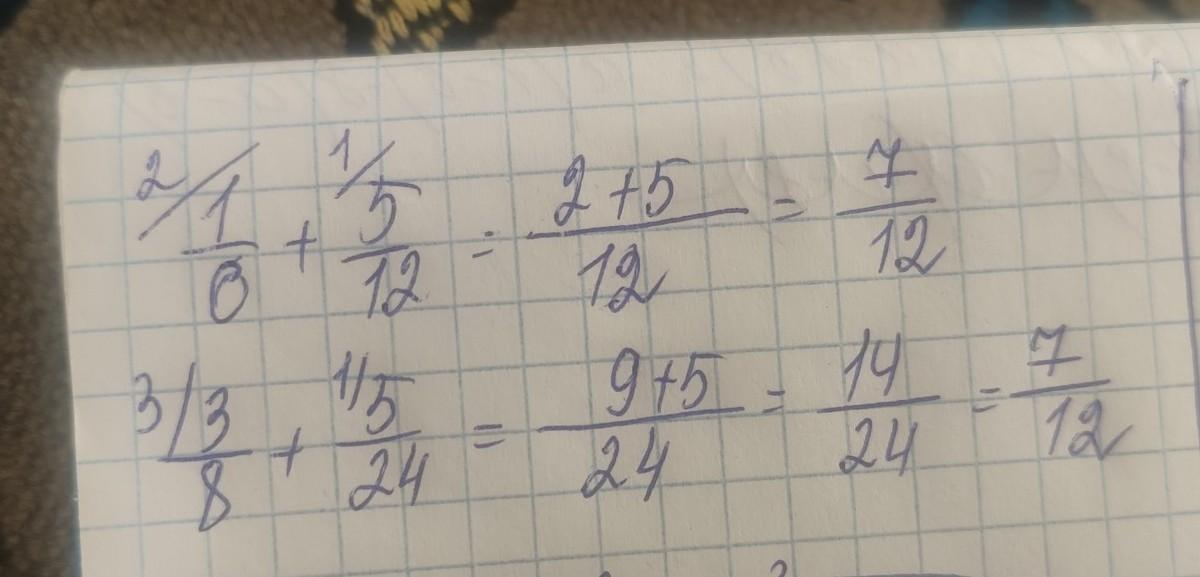 2/ 1/6 + 1/ 5/12 = 2+5/12 = 7/12
3/ 3/8 + 1/ 5/24 = 9+5/24 = 14/24 = 7/12